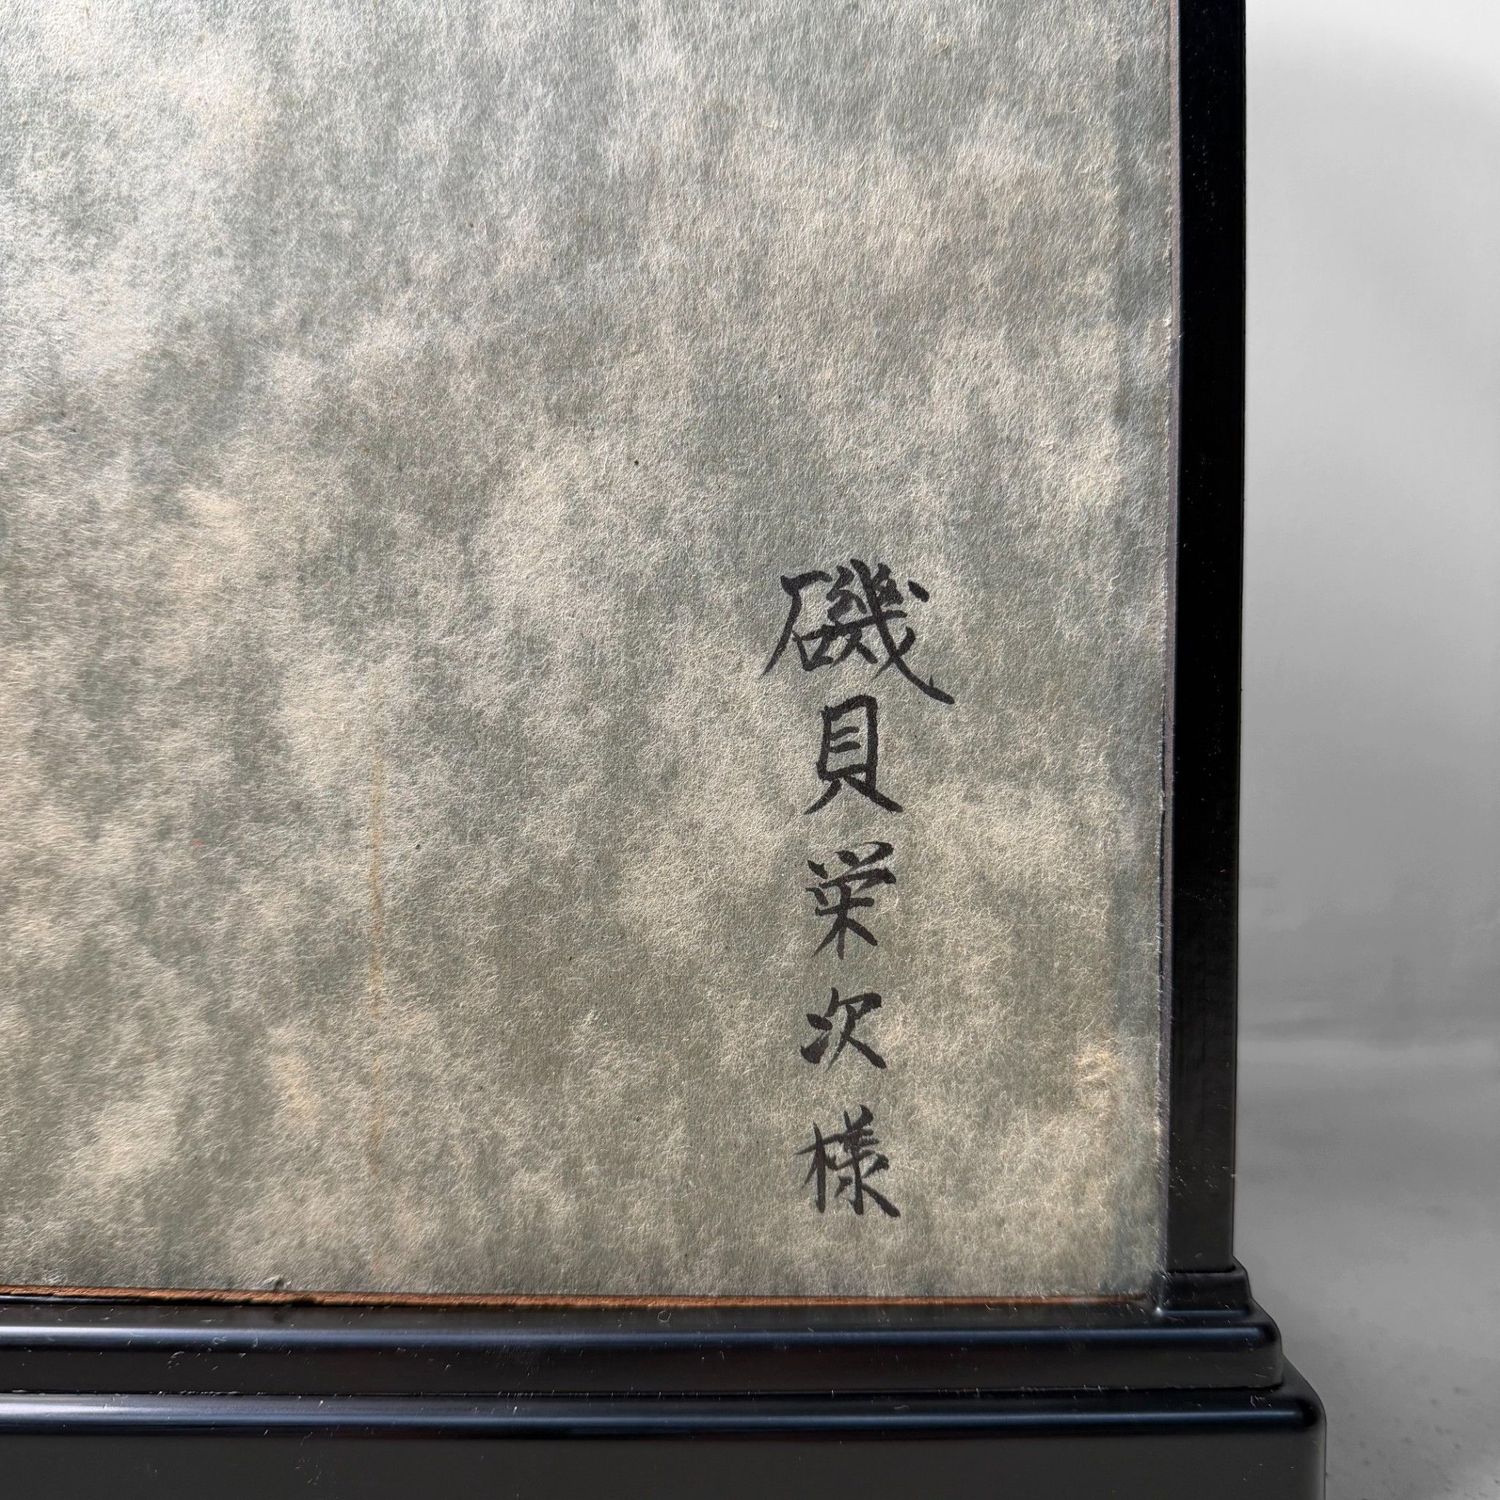 磯貝栄次様